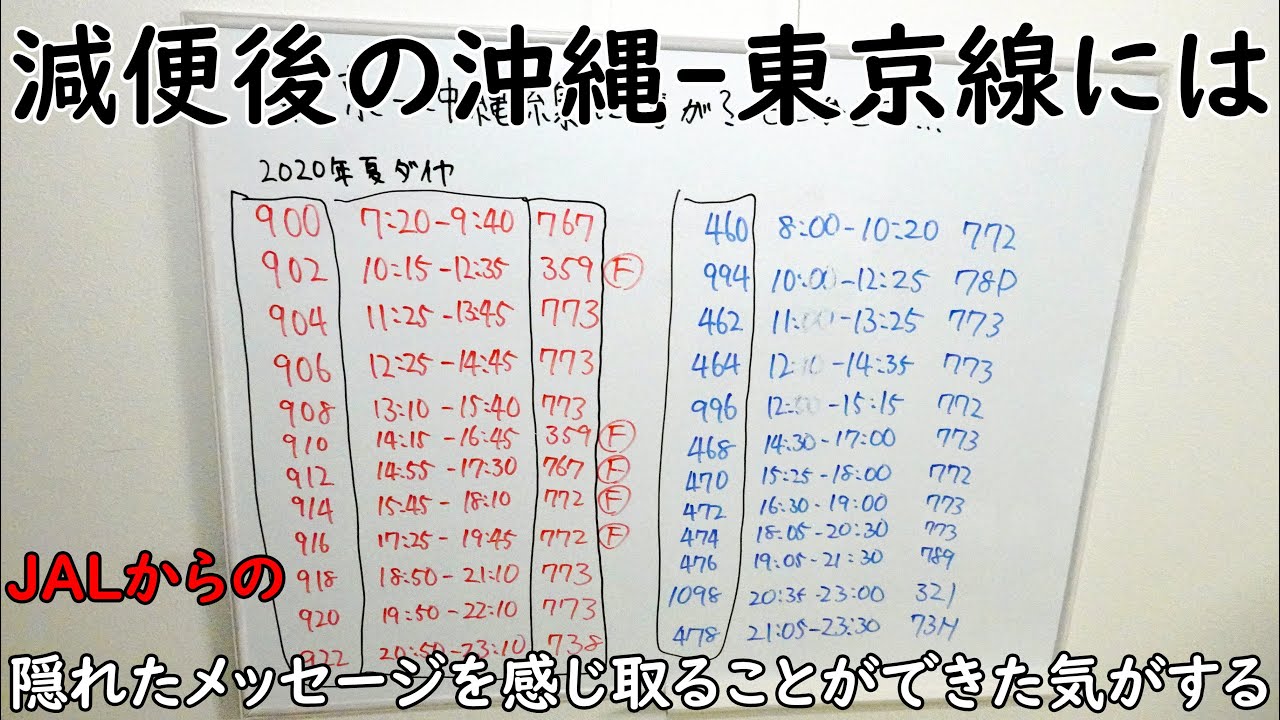 減便後の沖縄-東京線には
2020年夏ダイヤ
900 7:20-9:40 767
902 10:15-12:35 359 Ⓕ
904 11:25-13:45 773
906 12:25-14:45 773
908 13:10-15:40 773
910 14:15-16:45 359 Ⓕ
912 14:55-17:30 767 Ⓕ
914 15:45-18:10 772 Ⓕ
916 17:25-19:45 772 Ⓕ
918 18:50-21:10 773
920 19:50-22:10 773
922 20:50-23:10 738
460 8:00-10:20 772
994 10:00-12:25 78P
462 11:00-13:25 773
464 12:10-14:35 773
996 -15:15 772
468 14:30-17:00 773
470 15:25-18:00 772
472 16:30-19:00 773
474 18:05-20:30 773
476 19:05-21:30 789
1098 20:35-23:00 32J
478 21:05-23:30 73H
JALからの
隠れたメッセージを感じ取ることができた気がする